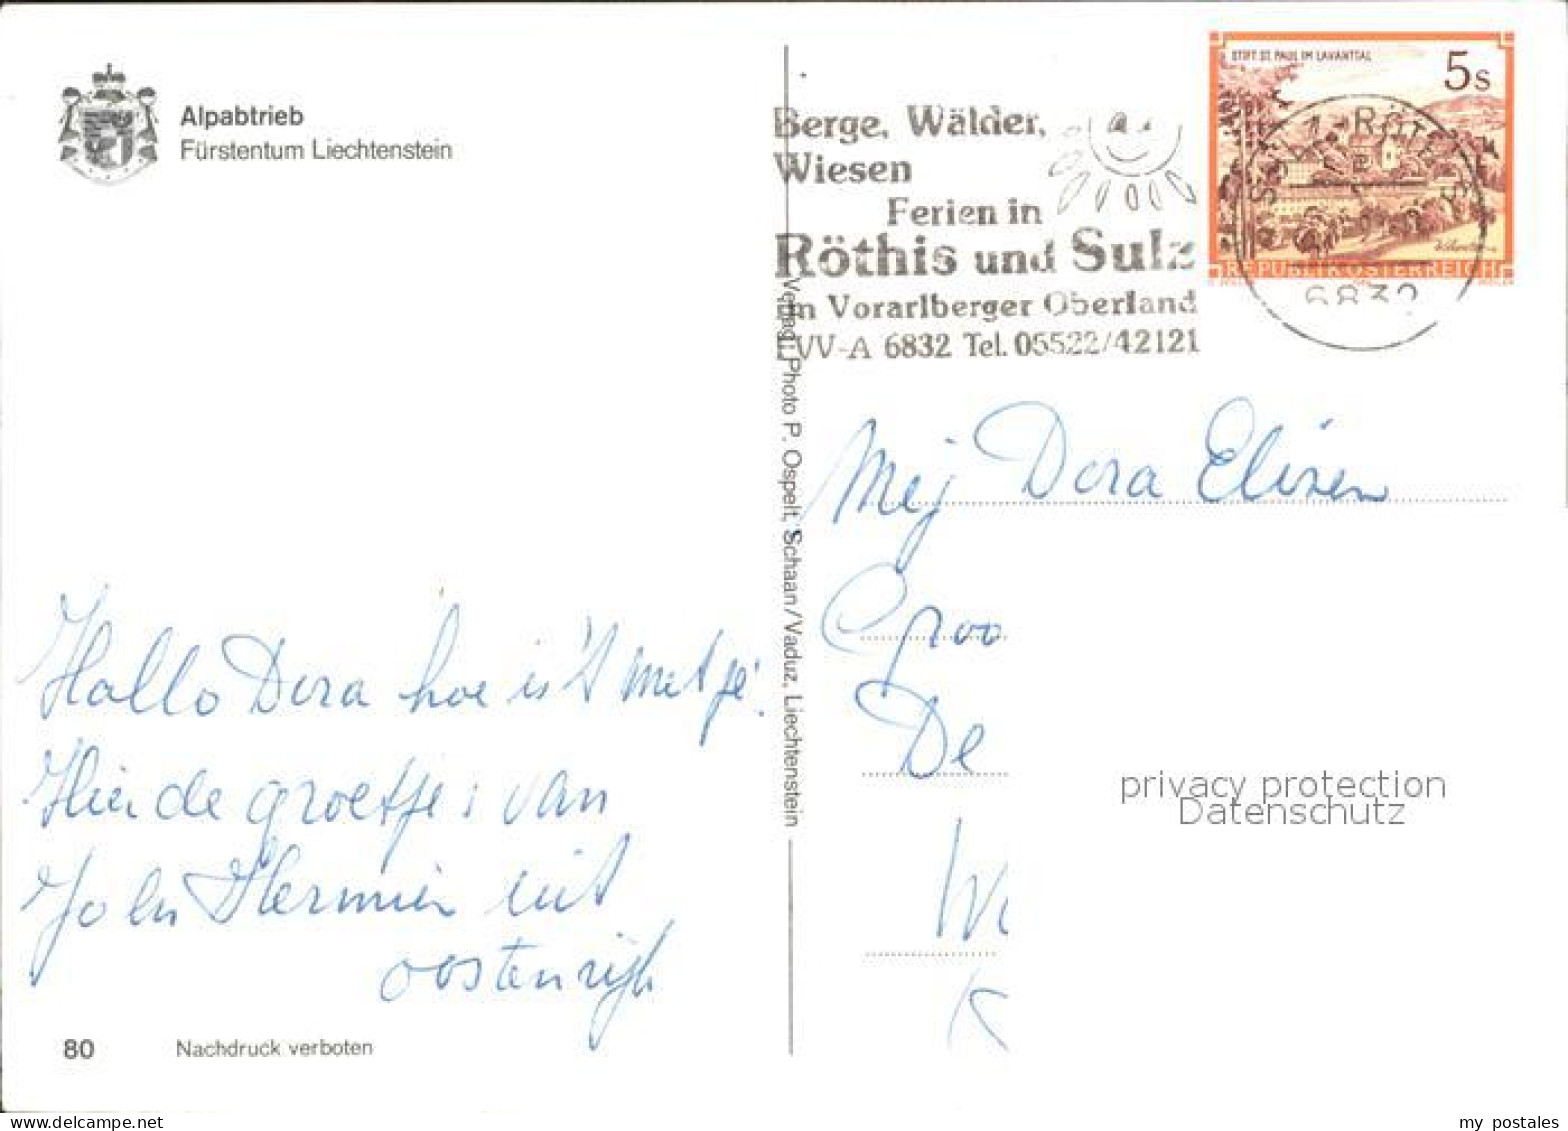 Alpabtrieb
Fürstentum Liechtenstein
Berge, Wälder,
Wiesen
Ferien in
Röthis und Sulz
im Vorarlberger Oberland
VV-A 6832 Tel. 05522/42121
STIFT ST. PAUL IM LAVANTTAL
5s
REPUBLIK ÖSTERREICH
SULZ-RÖTHIS
6832
Verlag: Photo P. Ospelt, Schaan/Vaduz, Liechtenstein
Mej Dora Elisen
Groo
De
W
K
Hallo Dora hoe is 't met je.
Hier de groetjes van
John Hermien uit
oostenrijk
80 Nachdruck verboten
privacy protection
Datenschutz
my_postales